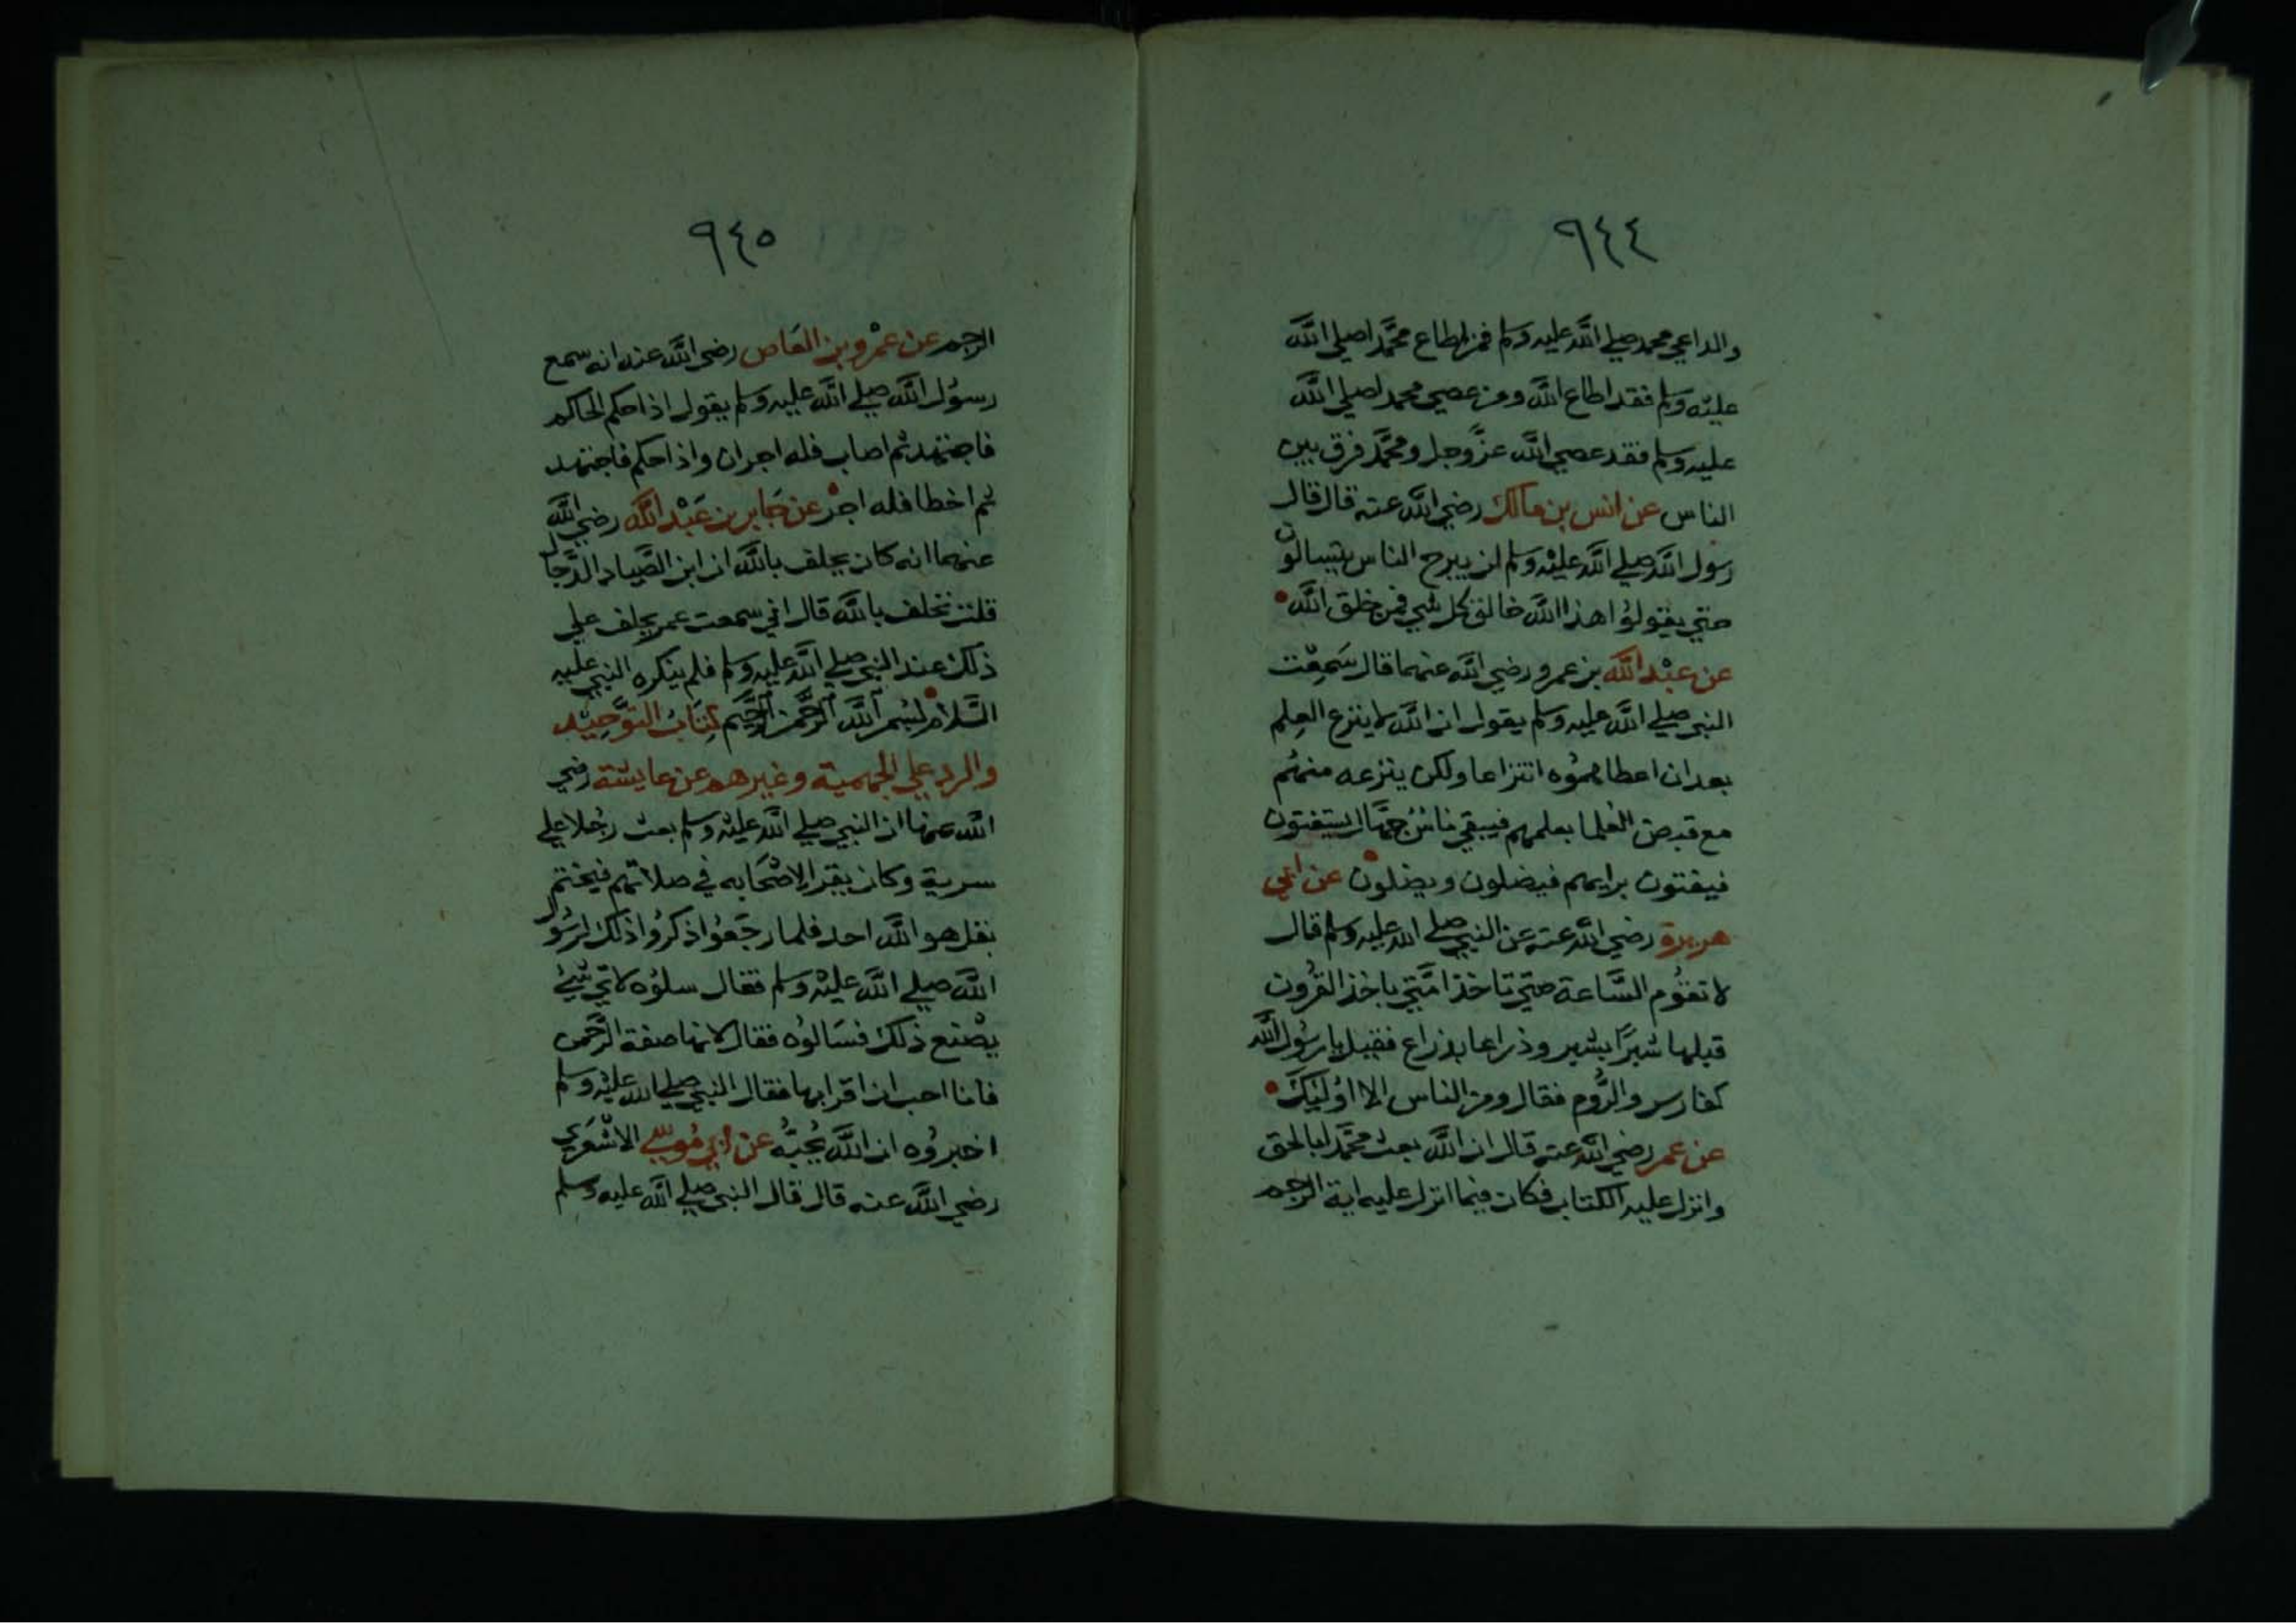 ٩٤٤
والداعي محمد صلي الله عليه وسلم فمن اطاع محمدا صلي الله
عليه وسلم فقد اطاع الله ومن عصي محمدا صلي الله
عليه وسلم فقد عصي الله عزوجل ومحمد فرق بين
الناس عن انس بن مالك رضي الله عنه قال قال
رسول الله صلي الله عليه وسلم لن يبرح الناس يتسالون
حتي يقولوا هذا الله خالق كل شي فمن خلق الله
عن عبد الله بن عمرو رضي الله عنهما قال سمعت
النبي صلي الله عليه وسلم يقول ان الله لا ينزع العلم
بعد ان اعطاهموه انتزاعا ولكن ينزعه منهم
مع قبض العلما بعلمهم فيبقي ناس جهال يستفتون
فيفتون برايهم فيضلون ويضلون عن ابي
هريرة رضي الله عنه عن النبي صلي الله عليه وسلم قال
لا تقوم الساعة حتي تاخذ امتي باخذ القرون
قبلها شبرا بشبر وذراعا بذراع فقيل يا رسول الله
كفارس والروم فقال ومن الناس الا اوليك
عن عمر رضي الله عنه قال ان الله بعث محمدا بالحق
وانزل عليه الكتاب فكان فيما انزل عليه اية الرجم
٩٤٥
الرجم عن عمرو بن العاص رضي الله عنه انه سمع
رسول الله صلي الله عليه وسلم يقول اذا حكم الحاكم
فاجتهد ثم اصاب فله اجران واذا حكم فاجتهد
ثم اخطا فله اجر عن جابر بن عبد الله رضي الله
عنهما انه كان يحلف بالله ان ابن الصياد الدجال
قلت تحلف بالله قال اني سمعت عمر يحلف علي
ذلك عند النبي صلي الله عليه وسلم فلم ينكره النبي عليه
السلام بسم الله الرحمن الرحيم كتاب التوحيد
والرد علي الجهمية وغيرهم عن عايشة رضي
الله عنها ان النبي صلي الله عليه وسلم بعث رجلا علي
سرية وكان يقرا لاصحابه في صلاتهم فيختم
بقل هو الله احد فلما رجعوا ذكروا ذلك لرسول
الله صلي الله عليه وسلم فقال سلوه لاي شيئ
يصنع ذلك فسالوه فقال لانها صفة الرحمن
فانا احب ان اقرا بها فقال النبي صلي الله عليه وسلم
اخبروه ان الله يحبه عن ابي موسي الاشعري
رضي الله عنه قال قال النبي صلي الله عليه وسلم